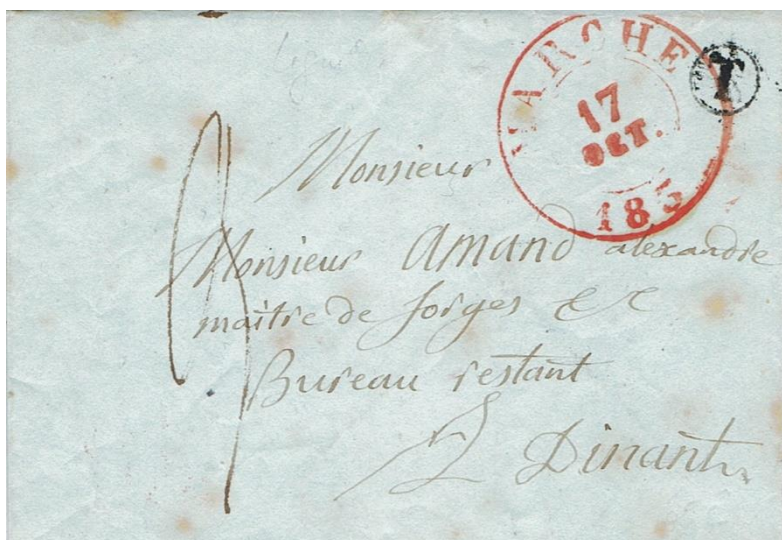 MARCHE
17
OCT.
185
Monsieur
Monsieur Amand alexandre
maître de forges &c
Bureau restant
à Dinant